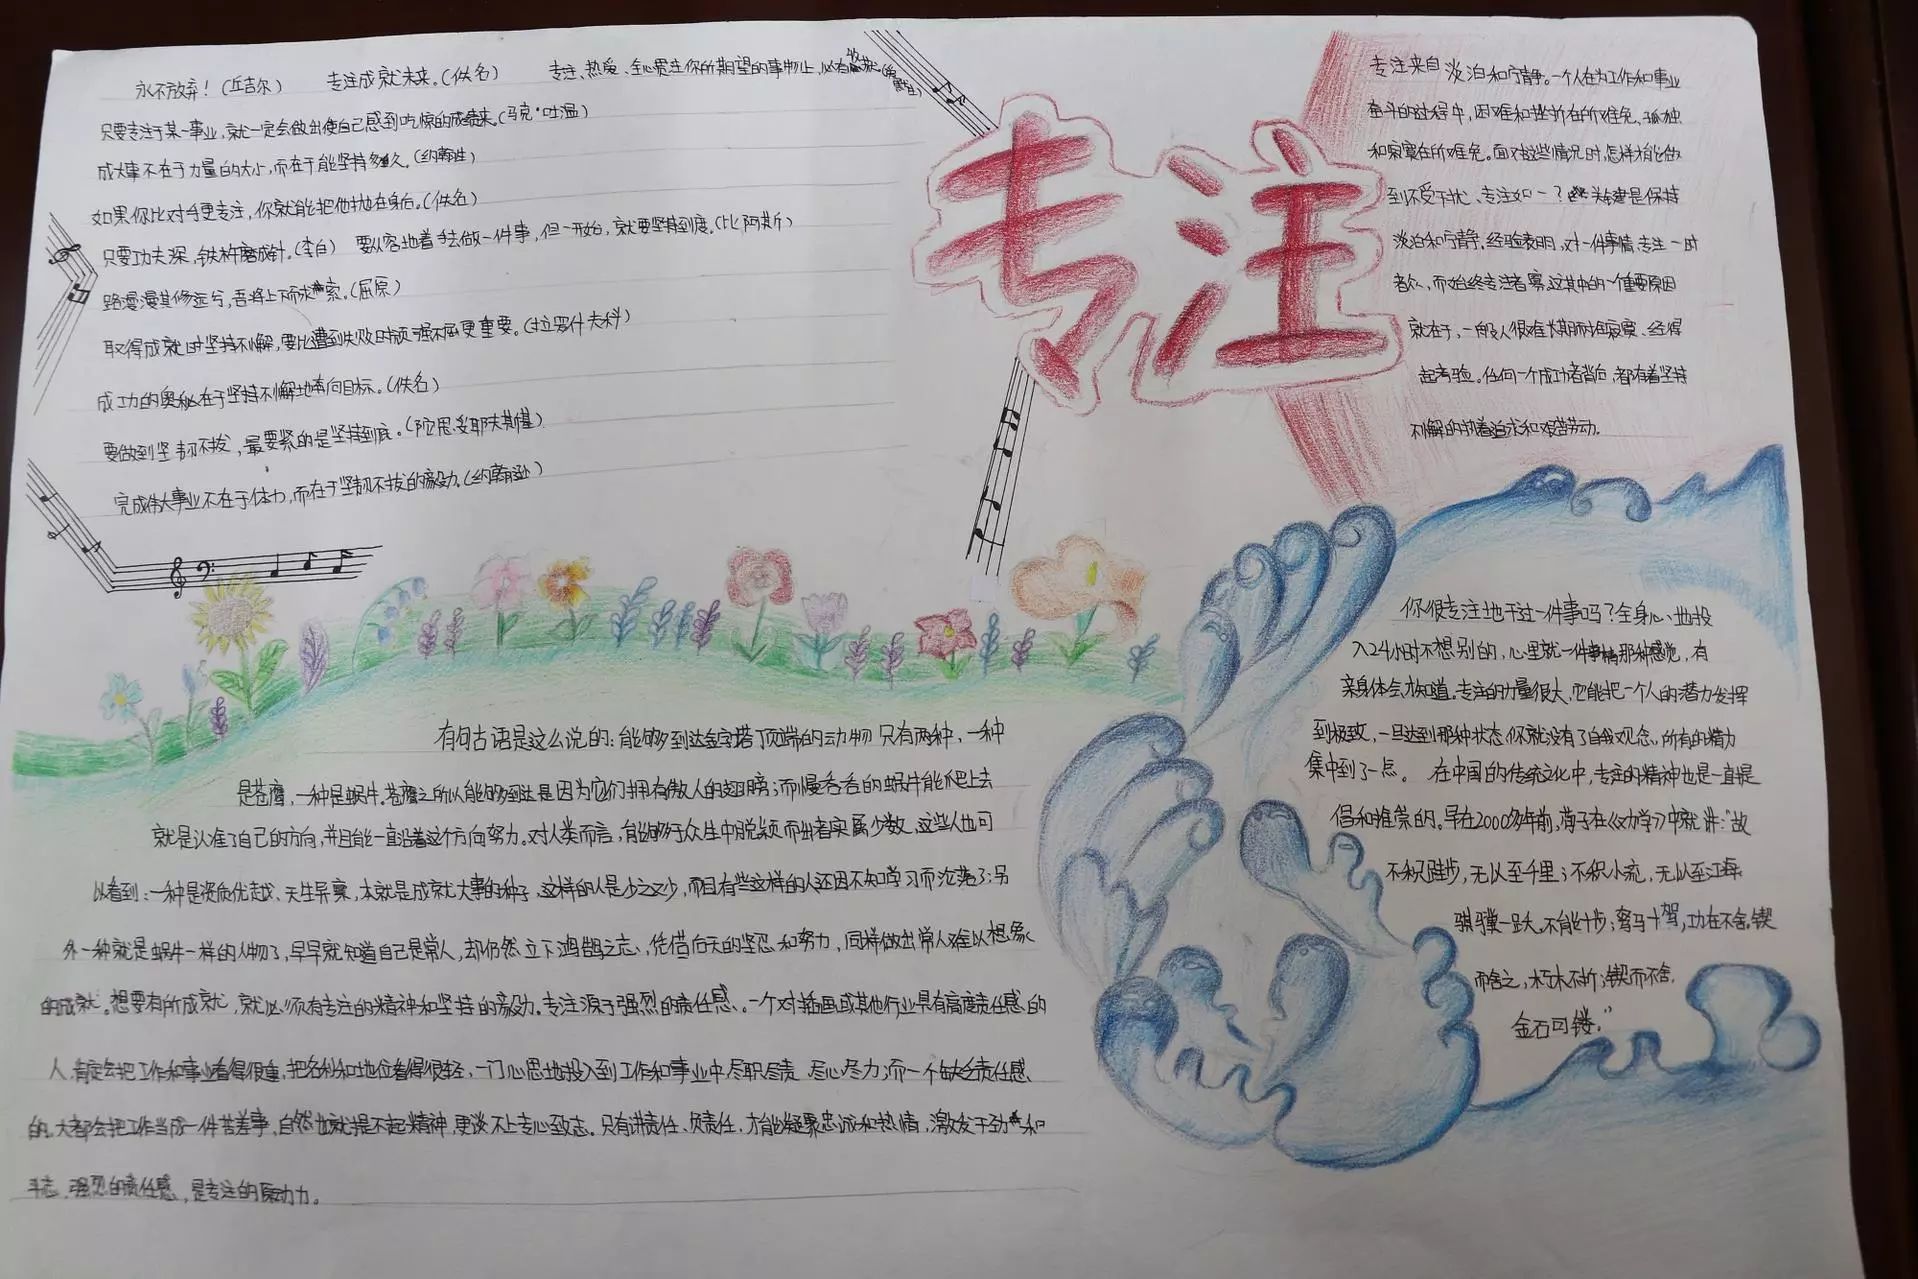 永不放弃！(丘吉尔) 专注成就未来。(佚名) 专注、热爱、全心贯注你所期望的事物上，必有收获。
只要专注于某一事业，就一定会做出使自己感到吃惊的成绩来。(马克·吐温)
成大事不在于力量的大小，而在于能坚持多久。(约翰生)
如果你比对手更专注，你就能把他抛在身后。(佚名)
只要功夫深，铁杵磨成针。(李白) 要从容地着手去做一件事，但一开始，就要坚持到底。(比阿斯)
路漫漫其修远兮，吾将上下而求索。(屈原)
取得成就时坚持不懈，要比遭到失败时顽强不屈更重要。(拉罗什夫科)
成功的奥秘在于坚持不懈地奔向目标。(佚名)
要做到坚韧不拔，最要紧的是坚持到底。(陀思妥耶夫斯基)
完成伟大事业不在于体力，而在于坚韧不拔的毅力。(约翰逊)
专注
专注来自淡泊和宁静。一个人在为工作和事业
奋斗的过程中，困难和挫折在所难免、孤独
和寂寞在所难免。面对这些情况时，怎样才能做
到不受干扰、专注如一？关键是保持
淡泊和宁静。经验表明，对一件事情，专注一时
者众，而始终专注者寡，这其中的一个重要原因
就在于，一般人很难长期耐住寂寞、经得
起考验。任何一个成功者背后，都有着坚持
不懈的执着追求和艰苦劳动。
你很专注地干过一件事吗？全身心地投
入24小时不想别的，心里就一件事情那种感觉，有
亲身体会才知道。专注的力量很大，它能把一个人的潜力发挥
到极致，一旦达到那种状态你就没有了自我观念，所有的精力
集中到了一点。 在中国的传统文化中，专注的精神也是一直提
倡和推崇的。早在2000多年前，荀子在《劝学》中就讲："故
不积跬步，无以至千里；不积小流，无以至江海；
骐骥一跃，不能十步；驽马十驾，功在不舍。锲
而舍之，朽木不折；锲而不舍，
金石可镂。"
有句古语是这么说的：能够到达金字塔顶端的动物只有两种，一种
是苍鹰，一种是蜗牛。苍鹰之所以能够到达是因为它们拥有傲人的翅膀；而慢吞吞的蜗牛能爬上去
就是认准了自己的方向，并且能一直沿着这个方向努力。对人类而言，能够于众生中脱颖而出者实属少数，这些人也可
以看到：一种是资质优越、天生异禀，本就是成就大事的种子，这样的人是少之又少，而且有些这样的人还因不知学习而沦落了；另
外一种就是蜗牛一样的人物了，早早就知道自己是常人，却仍然立下鸿鹄之志，凭借后天的坚忍和努力，同样做出常人难以想象
的成就。想要有所成就，就必须有专注的精神和坚持的毅力。专注源于强烈的责任感。一个对插画或其他行业具有高度责任感的
人，肯定会把工作和事业看得很重，把名利和地位看得很轻，一门心思地投入到工作和事业中，尽职尽责、尽心尽力；而一个缺乏责任感
的，大都会把工作当成一件苦差事，自然也就提不起精神，更谈不上专心致志。只有讲责任、负责任，才能凝聚忠诚和热情，激发干劲和
斗志，强烈的责任感，是专注的原动力。